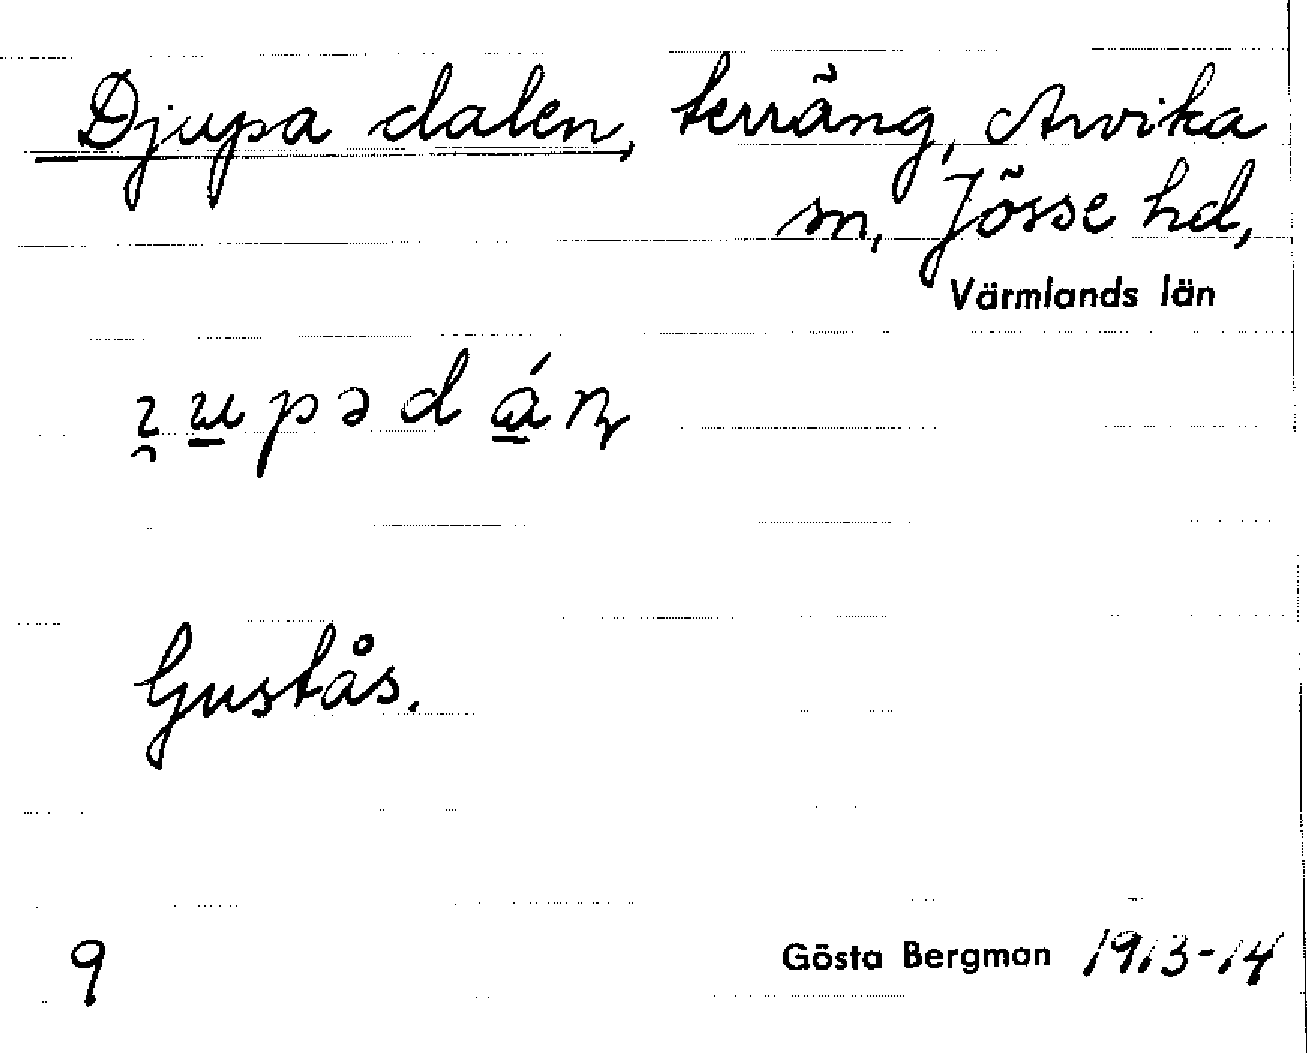 Djupa dalen, terräng, Arvika
sn, Jösse hd,
Värmlands län
Gustås.
9
Gösta Bergman 1913-14